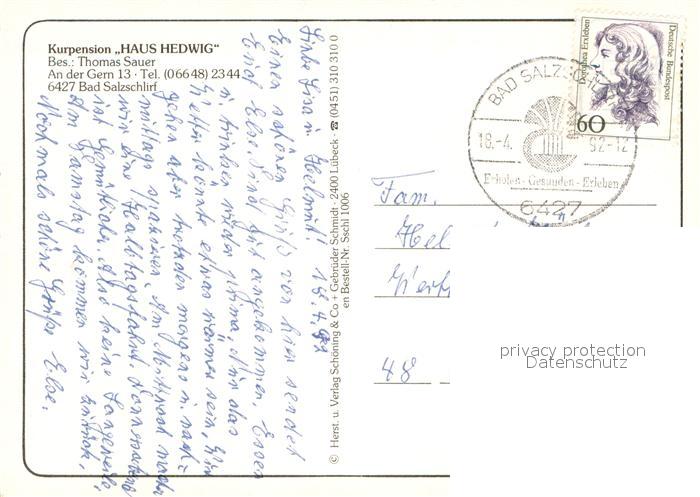 Kurpension „HAUS HEDWIG“
Bes.: Thomas Sauer
An der Gern 13 · Tel. (06648) 2344
6427 Bad Salzschlirf
Liebe Lisa u. Helmut! 18.4.92
Einen schönen Gruß von hier sendet
Euch Else. Sind gut angekommen. Essen
u. trinken wieder prima. Nur das
Wetter könnte etwas wärmer sein. Wir
gehen aber trotzdem morgens u. nach=
mittags spazieren. Am Mittwoch machen
wir eine Halbtagsfahrt. Donnerstag
ist Also keine Langeweile.
Am Samstag kommen wir zurück.
Nochmals schöne Grüße Else.
© Herst. u. Verlag Schöning & Co + Gebrüder Schmidt · 2400 Lübeck · ☎ (0451) 310 310 0
en Bestell-Nr. Sschl 1006
BAD SALZSCHL
18.-4. 92-12
Erholen - Gesunden - Erleben
6427
Dorothea Erxleben
Deutsche Bundespost
60
Fam.
Hel
48
privacy protection
Datenschutz